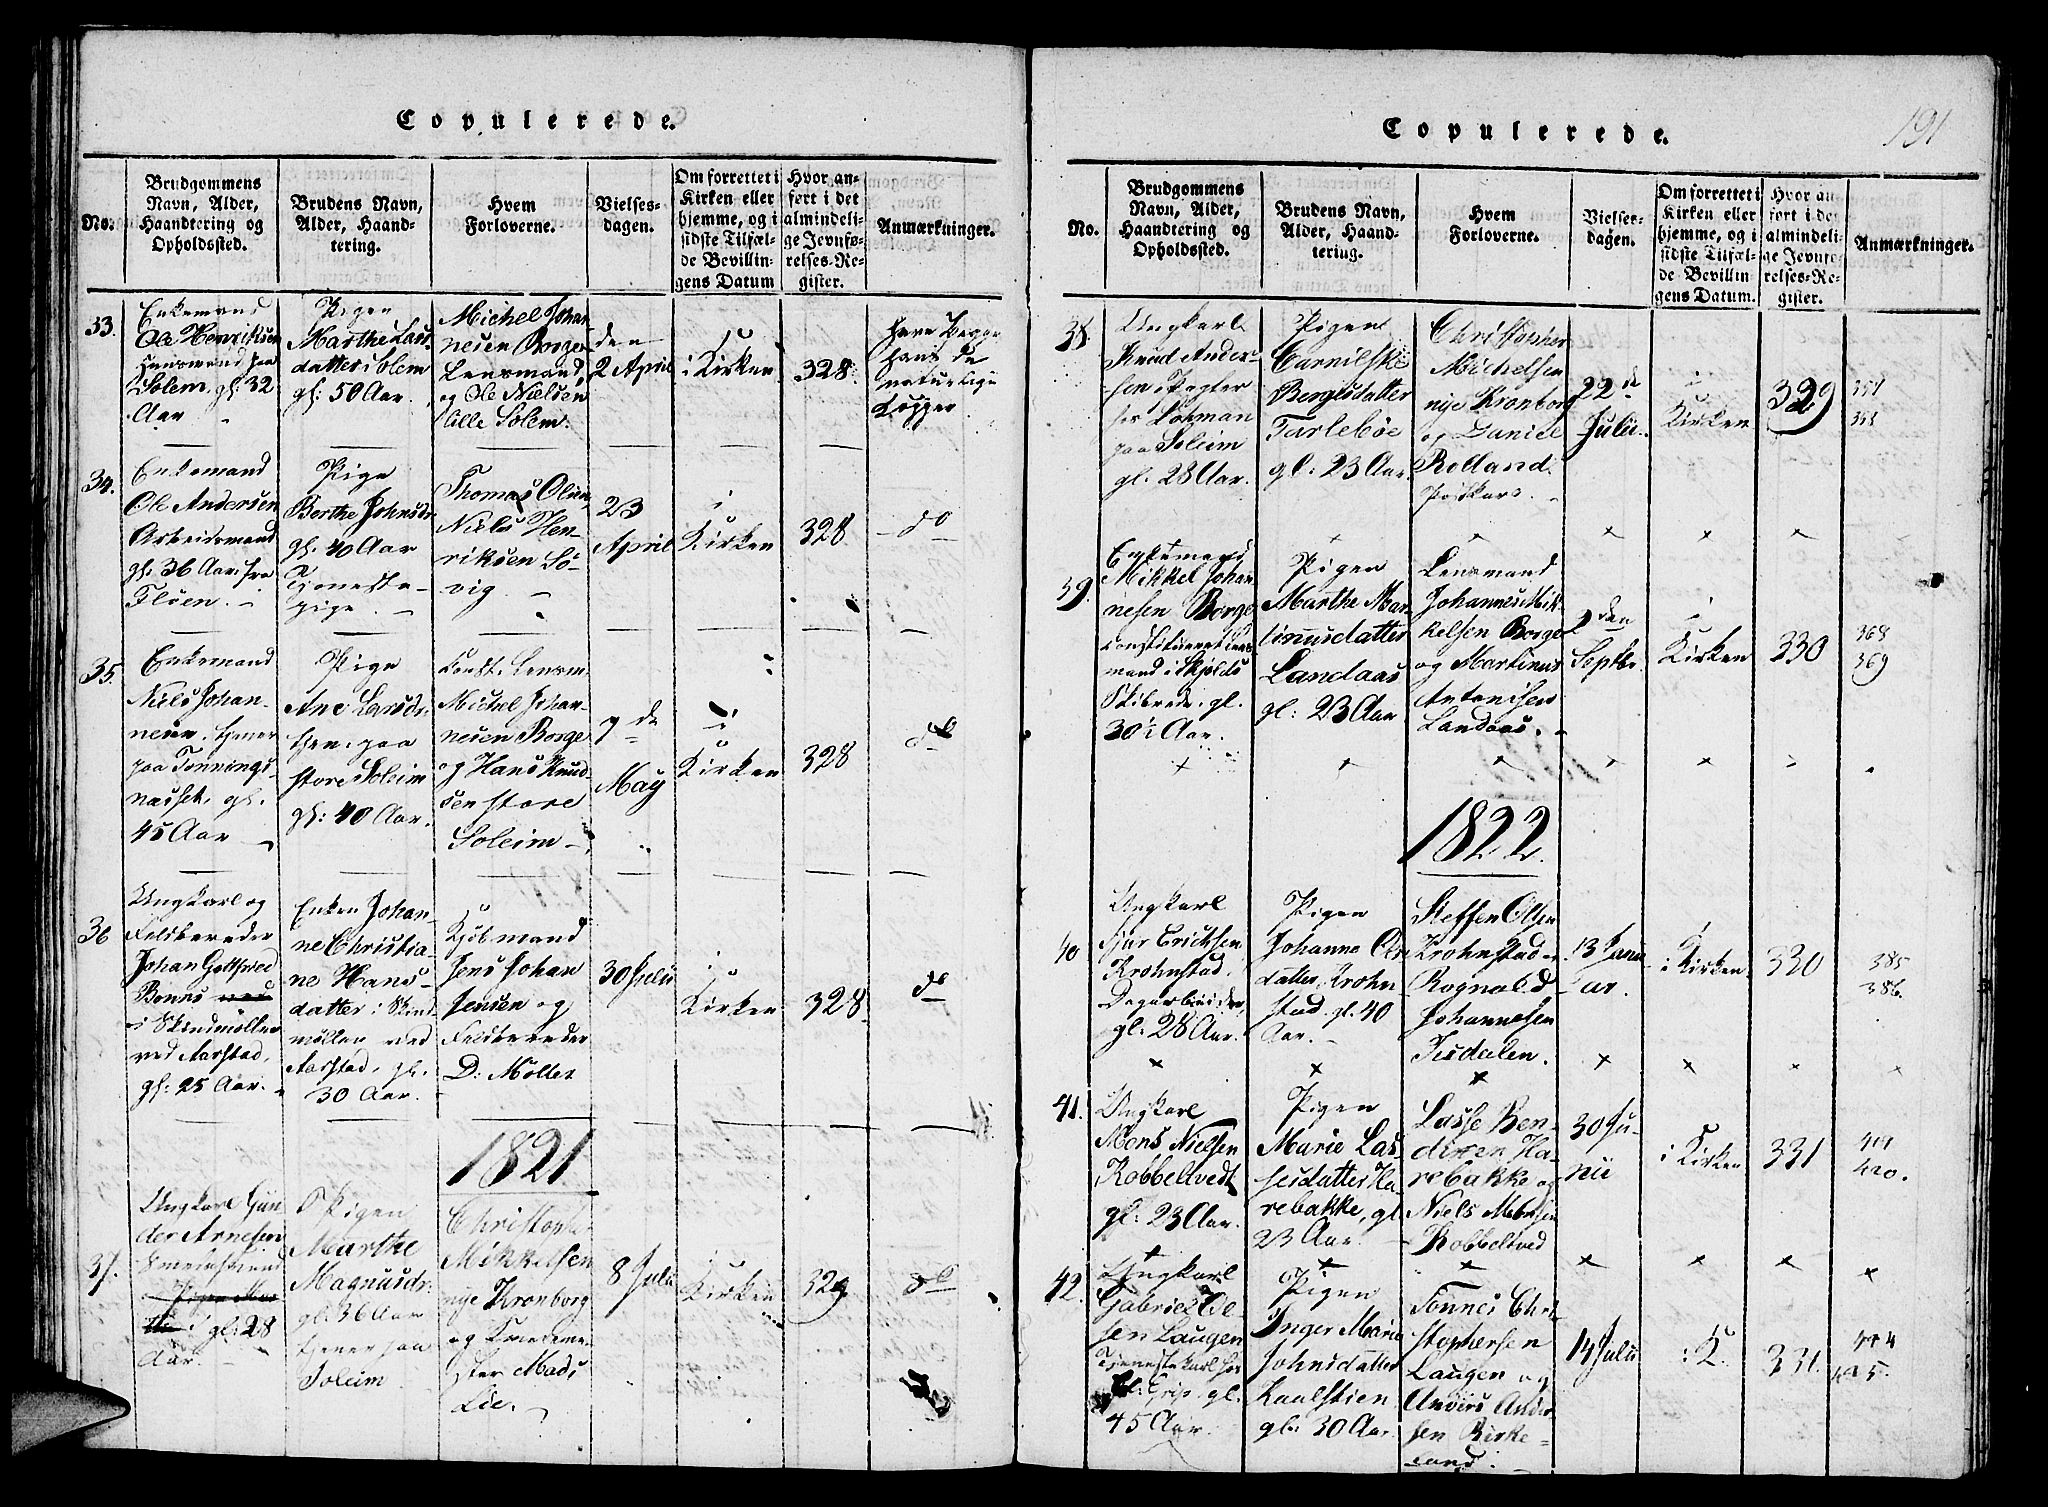 Copulerede.
No.
Brudgommens
Navn, Alder,
Haandtering og
Opholdssted.
Brudens Navn,
Alder, Haand-
tering.
Hvem
Forloverne.
Vielses-
dagen.
Om forrettet i
Kirken eller
hjemme, og i
sidste Tilfæl-
de Bevillin-
gens Datum
Hvor an-
ført i det
almindeli-
ge Jevnfø-
relses-Re-
gister.
Anmærkninger.
33.
Enkemand
Ole Henriksen
Huusmand paa
Solem, gl: 32
Aar
Pigen
Marthe Lars-
datter Solem
gl: 50 Aar.
Michel Johan-
nesen Borge
Lensmand,
og Ole Nielsen
lille Solem.
den
2 April
i Kirken
328.
have Begge
havt de
naturlige
Kopper
34.
Enkemand
Ole Andersen
Arbeidsmand
gl: 36 Aar. fra
Fløen.
Pige
Berthe Johnsdr
gl: 40 Aar
Tjeneste-
pige.
Thomas Olsen,
Niels Hen-
riksen Sø-
vig.
23
April
i
Kirken
328
do
35.
Enkemand
Niels Johan-
nesen, tjener
paa Tønnings-
nesset, gl.
45 Aar
Pige
Ane Larsdr.
tjen. paa
store Soleim
gl: 40 Aar.
Const. Lensm.
Michel Johan-
nesen Borge
og Hans Knud-
sen store
Soleim
7 de
May
i
Kirken
328
do
36
Ungkarl og
Feldbereder
Johan Gottfried
Bonns ved
i Skindmøllen
ved Aarstad,
gl: 25 Aar.
Enken Johan-
ne Christia-
ne Hans-
datter i Skind-
møllen ved
Aarstad, gl.
30 Aar.
Kjøbmand
Jens Johan
Jensen og
Feldbereder
D: Møller
30 Julii
i
Kirken
328.
do
1821
37.
Ungkarl Gun-
der Arnesen
gl: 28
Aar.
Pigen
Marthe
Magnusdr.
gl: 36 Aar
tjener paa
Soleim
Christopher
Mikkelsen
nye Kronborg
og
Mads
Lie.
8 Julii
i
Kirken
329
do
Copulerede.
191
No.
Brudgommens
Navn, Alder,
Haandtering og
Opholdssted.
Brudens Navn,
Alder, Haand-
tering.
Hvem
Forloverne.
Vielses-
dagen.
Om forrettet i
Kirken eller
hjemme, og i
sidste Tilfæl-
de Bevillin
gens Datum.
Hvor an
ført i det
almindeli-
ge Jevnfø-
relses-Re-
gister.
Anmærkninger.
38.
Ungkarl
Knud Ander-
sen, Pagter
hos Lohman
paa Soleim
gl. 28 Aar.
Pigen
Carnilske
Bergesdatter
Tarlebøe
gl: 23 Aar.
Christopher
Michelsen
nye Kronborg
og Daniel
Rolland.
Postkarl.
22 de
Julii
i
Kirken
329
39.
Enkemand
Mikkel Johan
nesen Borge
constitueret Lens
mand i Skjolds
Skibrede, gl.
30½ Aar.
Pigen
Marthe Mar-
tinusdatter
Landaas
gl: 23 Aar
Lensmand
Johannes Mik
kelsen Borge
og Martinus
Antonisen
Landaas.
2 den
Septbr.
i
Kirken
330
368
369
1822.
40
Ungkarl
Sjur Erichsen
Krohnstad,
Dagarbeider,
gl: 28 Aar.
Pigen
Johanna Ols
datter Krohn
stad. gl. 40
Aar.
Steffen Olsen
Krohnstad og
Rognald
Johannesen
Isdalen.
13 Janu
ar.
i Kirken
330
385
386.
41.
Ungkarl
Mons Nielsen
Kobbeltvedt
gl: 23 Aar.
Pigen
Marie Las-
sesdatter Ha
rebakke, gl
23 Aar.
Lasse Ben-
dixen Ha-
rebakke og
Niels Monsen
Kobbeltved
30 Ju-
nii
i Kirken
331
420.
42.
Ungkarl
Gabriel Ol
sen Laugen
Tjenestekarl hos
Grip, gl.
45 Aar.
Pigen
Inger Marie
Johnsdatter
Kaalstien
gl: 30 Aar.
Tønnes Chri-
stophersen
Laugen og
Anders Ander
sen Birke-
land.
14 Julii
i K.
331.